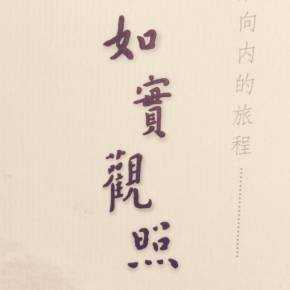 如實觀照
向內的旅程…………